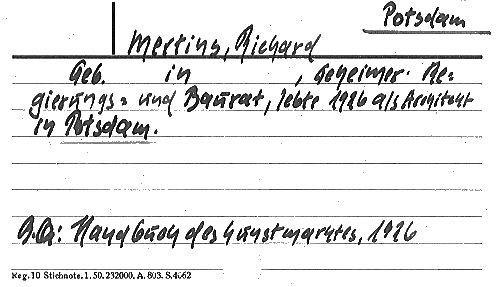 Potsdam
Mertins, Richard
Geb. in , Geheimer Re=
gierungs= und Baurat, lebte 1926 als Architekt
in Potsdam.
D.Qu: Handbuch des Kunstmarktes, 1926
Reg. 10 Stichnote. 1. 50. 232000. A. 803. S. 4062